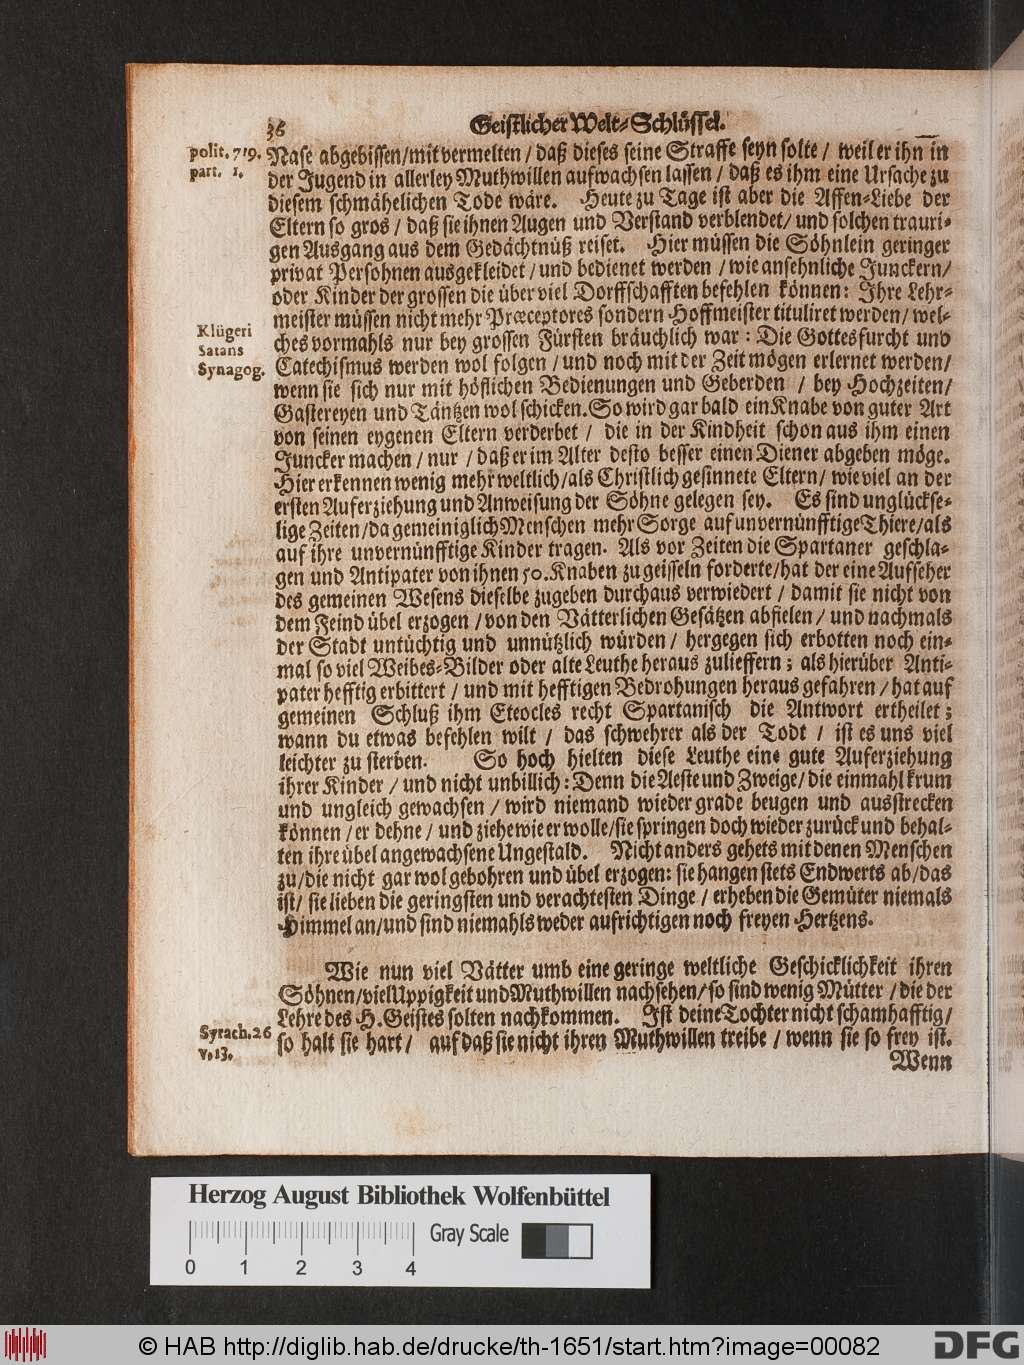 36
Geistlicher Welt-Schlüssel.
polit. 719.
part. 1.
Nase abgebissen/mit vermelten / daß dieses seine Straffe seyn solte / weil er ihn in
der Jugend in allerley Muthwillen aufwachsen lassen / daß es ihm eine Ursache zu
diesem schmähelichen Tode wäre. Heute zu Tage ist aber die Affen-Liebe der
Eltern so gros / daß sie ihnen Augen und Verstand verblendet/ und solchen trauri-
gen Ausgang aus dem Gedächtnüß reiset. Hier müssen die Söhnlein geringer
privat Persohnen ausgekleidet / und bedienet werden / wie ansehnliche Junckern/
oder Kinder der grossen die über viel Dorffschafften befehlen können: Ihre Lehr-
meister müssen nicht mehr Præceptores sondern Hoffmeister tituliret werden/ wel-
Klügeri
Satans
Synagog.
ches vormahls nur bey grossen Fürsten bräuchlich war: Die Gottesfurcht und
Catechismus werden wol folgen / und noch mit der Zeit mögen erlernet werden/
wenn sie sich nur mit höflichen Bedienungen und Geberden / bey Hochzeiten/
Gastereyen und Täntzen wol schicken. So wird gar bald ein Knabe von guter Art
von seinen eygenen Eltern verderbet / die in der Kindheit schon aus ihm einen
Juncker machen / nur / daß er im Alter desto besser einen Diener abgeben möge.
Hier erkennen wenig mehr weltlich/als Christlich gesinnete Eltern/ wie viel an der
ersten Auferziehung und Anweisung der Söhne gelegen sey. Es sind unglückse-
lige Zeiten/da gemeiniglich Menschen mehr Sorge auf unvernünfftige Thiere/als
auf ihre unvernünfftige Kinder tragen. Als vor Zeiten die Spartaner geschla-
gen und Antipater von ihnen 50. Knaben zu geisseln forderte/hat der eine Aufseher
des gemeinen Wesens dieselbe zugeben durchaus verwiedert / damit sie nicht von
dem Feind übel erzogen / von den Vätterlichen Gesätzen abfielen / und nachmals
der Stadt untüchtig und unnützlich würden / hergegen sich erbotten noch ein-
mal so viel Weibes-Bilder oder alte Leuthe heraus zulieffern; als hierüber Anti-
pater hefftig erbittert / und mit hefftigen Bedrohungen heraus gefahren / hat auf
gemeinen Schluß ihm Eteocles recht Spartanisch die Antwort ertheilet;
wann du etwas befehlen wilt / das schwehrer als der Todt / ist es uns viel
leichter zu sterben. So hoch hielten diese Leuthe eine gute Auferziehung
ihrer Kinder / und nicht unbillich: Denn die Aeste und Zweige/ die einmahl krum
und ungleich gewachsen / wird niemand wieder grade beugen und ausstrecken
können / er dehne / und ziehe wie er wolle/sie springen doch wieder zurück und behal-
ten ihre übel angewachsene Ungestald. Nicht anders gehets mit denen Menschen
zu/die nicht gar wol gebohren und übel erzogen: sie hangen stets Endwerts ab/das
ist/ sie lieben die geringsten und verachtesten Dinge / erheben die Gemüter niemals
Himmel an/und sind niemahls weder aufrichtigen noch freyen Hertzens.
Wie nun viel Vätter umb eine geringe weltliche Geschicklichkeit ihren
Söhnen/viel Uppigkeit und Muthwillen nachsehen/ so sind wenig Mütter / die der
Lehre des H. Geistes solten nachkommen. Ist deine Tochter nicht schamhafftig/
Syrach. 26
v. 13.
so halt sie hart/ auf daß sie nicht ihren Muthwillen treibe / wenn sie so frey ist.
Wenn
Herzog August Bibliothek Wolfenbüttel
Gray Scale
0 1 2 3 4
© HAB http://diglib.hab.de/drucke/th-1651/start.htm?image=00082
DFG